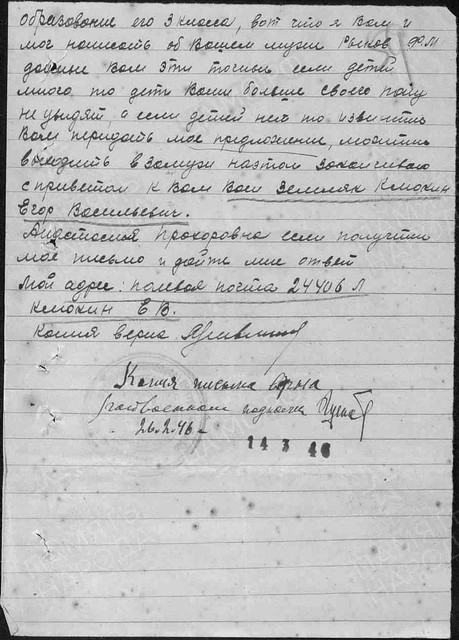 образование его 3 класса, вот что я Вам и
мог написать об Вашем мужи Рыков Ф М
дальше Вам эти если детей
много то дети Ваши больше своего папу
не увидят а если детей нет то извините
Вам передать мое предложения, можити
выходить взамужи наэтом заканчиваю
с приветом к Вам Ваш Земляк Клюкин
Егор Васильевич.
Анастасия Прохоровна если получити
мое письмо и дайте мне ответ
мой адрес: полевая почта 24406 Л
Клюкин Е В.
Копия верна
Копия письма верна
26.2.46
14 3 46